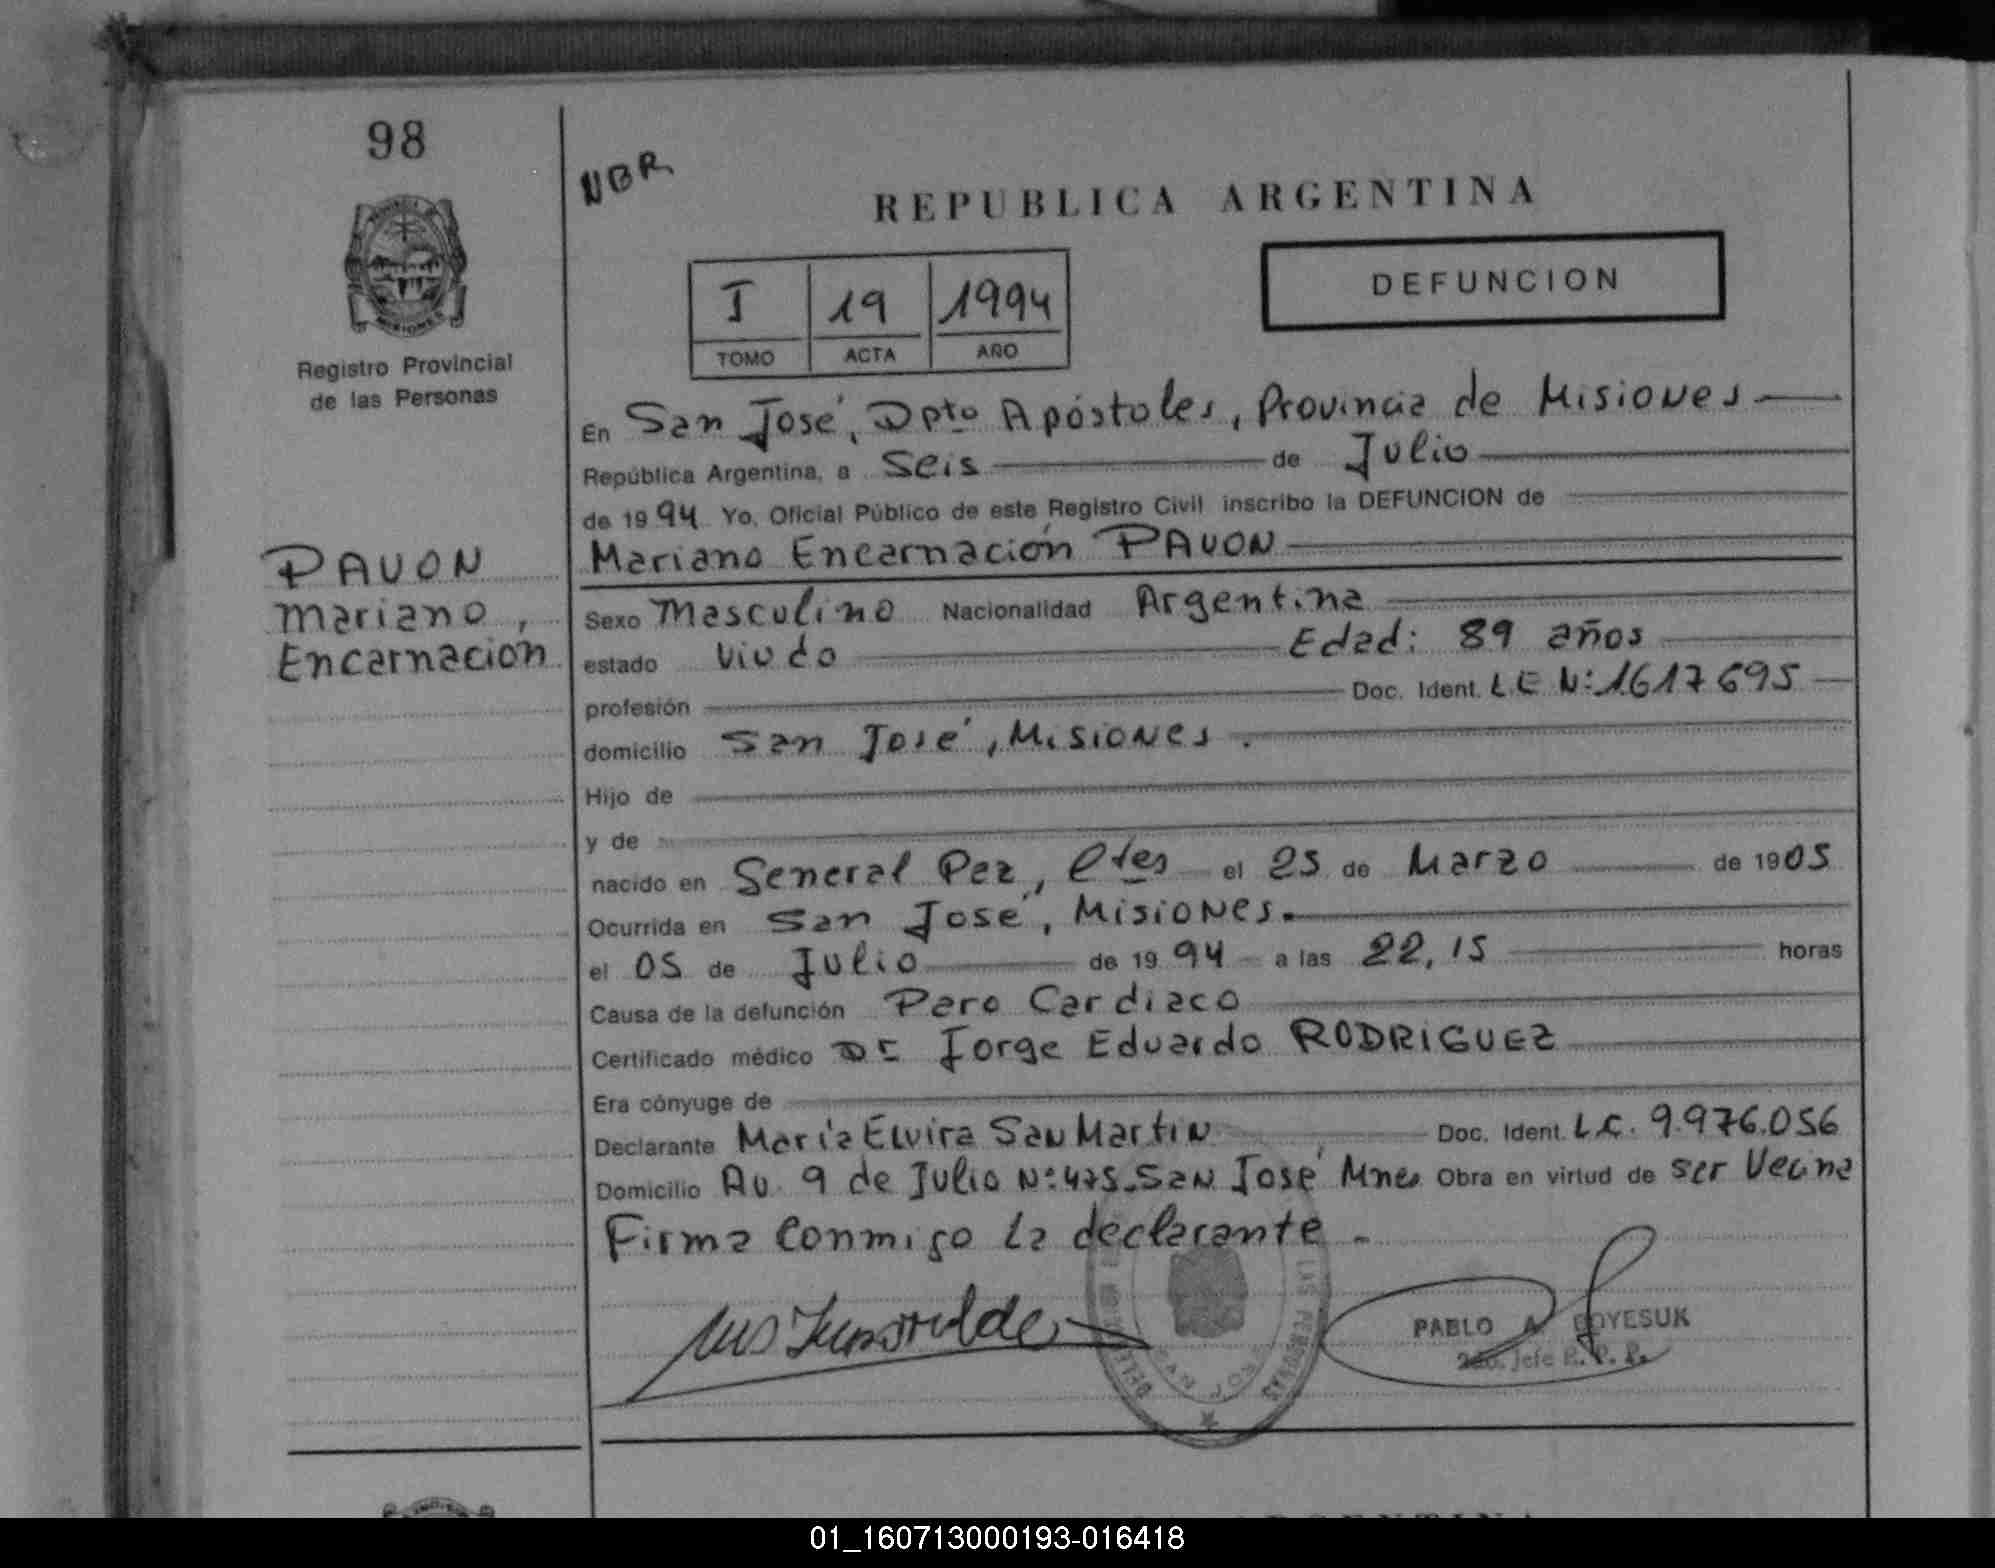 98
NBR
REPUBLICA ARGENTINA
MISIONES
Registro Provincial
de las Personas
I 19 1994
TOMO ACTA AÑO
DEFUNCION
En San José, Dpto Apóstoles, Provincia de Misiones
República Argentina, a Seis de Julio
de 1994 Yo, Oficial Público de este Registro Civil inscribo la DEFUNCION de
PAVON
Mariano,
Encarnación
Mariano Encarnación PAVON
Sexo Masculino Nacionalidad Argentina
estado Viudo Edad: 89 años
profesión Doc. Ident. L.E N: 1617695
domicilio San José, Misiones.
Hijo de
y de
nacido en General Paz, Ctes el 25 de Marzo de 1905
Ocurrida en San José, Misiones.
el 05 de Julio de 1994 a las 22,15 horas
Causa de la defunción Paro Cardiaco
Certificado médico Dr Jorge Eduardo RODRIGUEZ
Era cónyuge de
Declarante María Elvira San Martin Doc. Ident. L.C. 9.976.056
Domicilio Av. 9 de Julio N: 475. San José Mnes Obra en virtud de ser Vecina
Firma conmigo la declarante.
LAS PERSONAS
SAN JOSE
PABLO A. BOYESUK
2do. Jefe R. P. P.
01_160713000193-016418